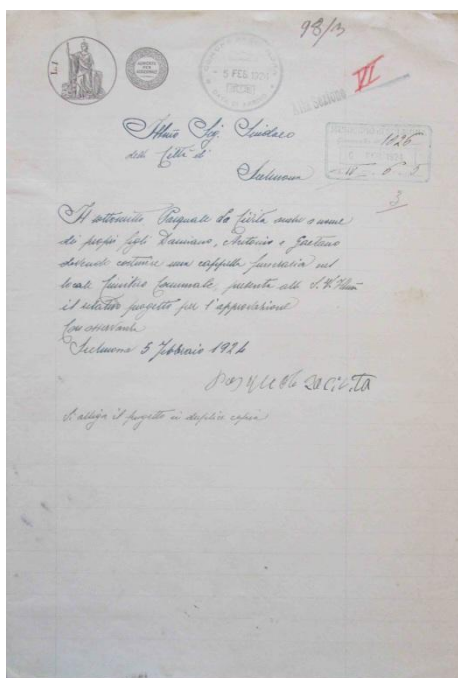 98/3
L. 1
5 FEB. 1924
VI
Alla Sezione
1826
Ill.mo Sig. Sindaco
della Città di
Sulmona
3
Il sottoscritto Pasquale La Civita anche a nome
dei propri figli Damiano, Antonio e Gaetano
dovendo costruire una cappella funeraria nel
locale Cimitero Comunale, presenta alla S.V. Ill.ma
il relativo progetto per l'approvazione
Con osservanza
Sulmona 5 Febbraio 1924
Pasquale La Civita
Si allega il progetto in duplice copia